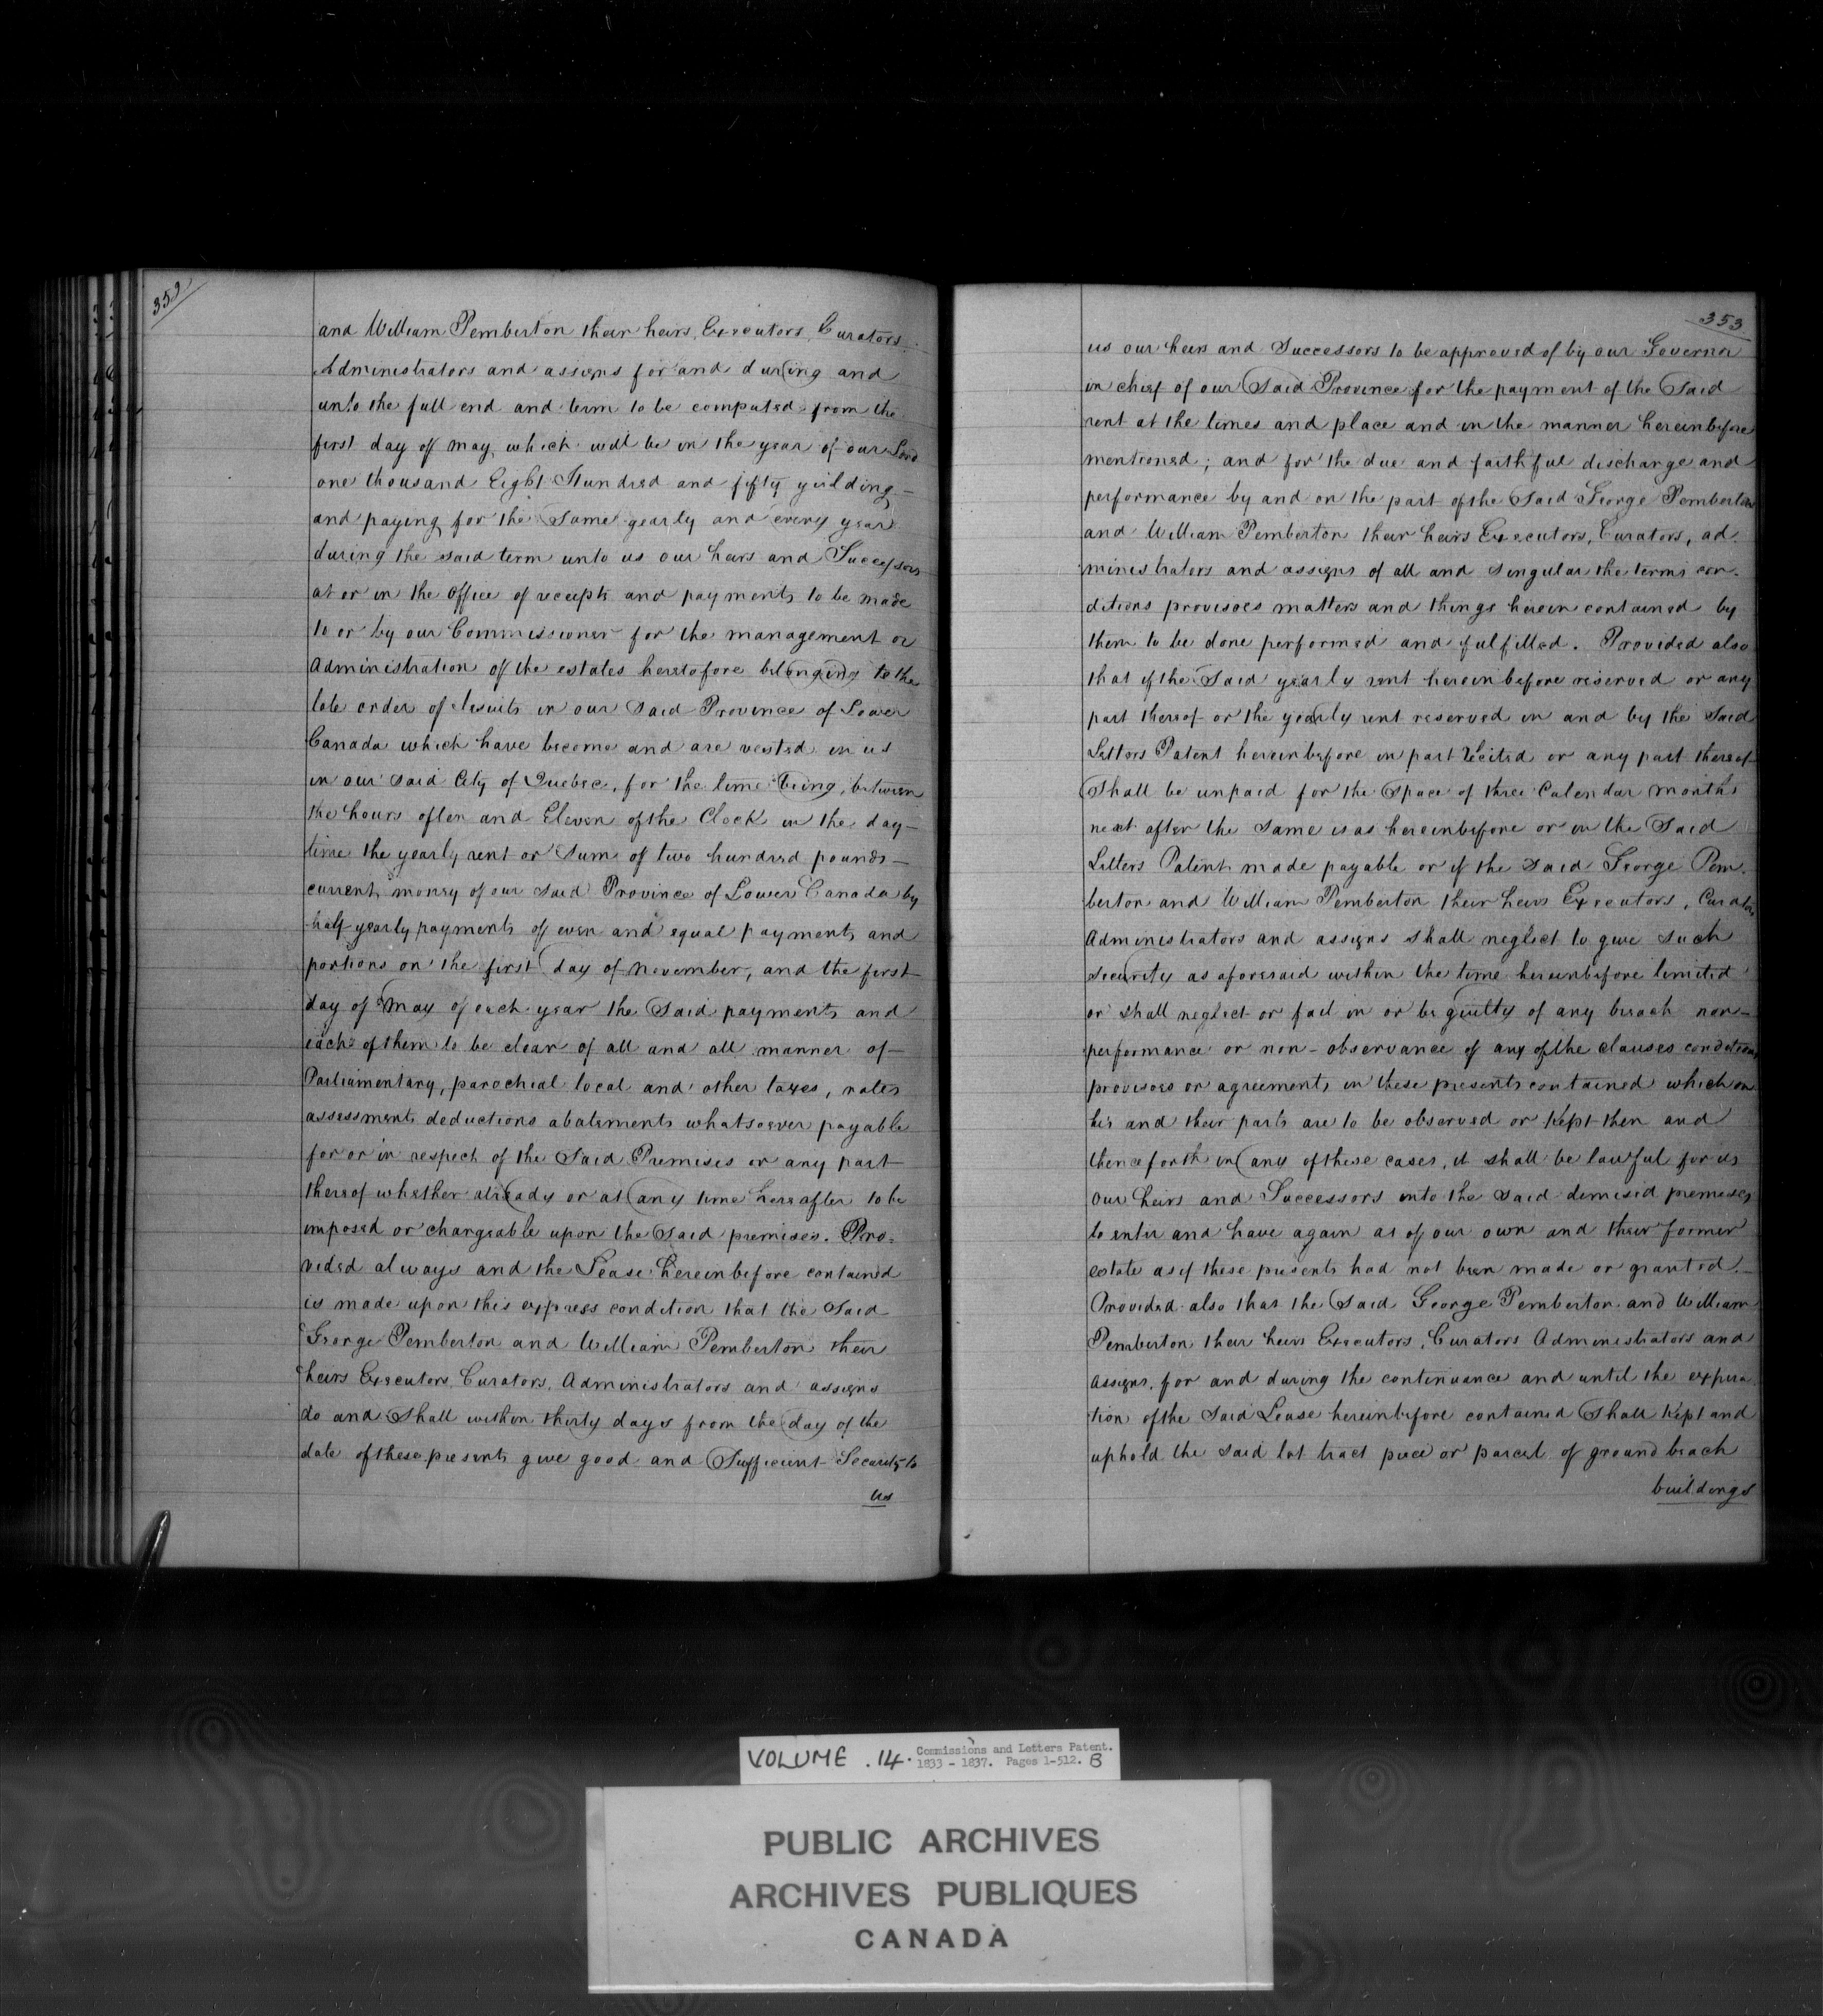 352
and William Pemberton their heirs, Executors, Curators,
Administrators and assigns for and during and
unto the full end and term to be computed from the
first day of May which will be in the year of our Lord
one thousand Eight Hundred and fifty yeilding —
and paying for the Same yearly and every year
during the said term unto us our heirs and Successors
at or in the Office of receipts and payments to be made
to or by our Commissioner for the management or
Administration of the estates heretofore belonging to the
late order of Jesuits in our said Province of Lower
Canada which have become and are vested in us
in our said City of Quebec, for the time being, between
the hours of ten and Eleven of the Clock in the day—
time the yearly rent or Sum of two hundred pounds —
current money of our said Province of Lower Canada by
half yearly payments of even and equal payments and
portions on the first day of november, and the first
day of may of each year the Said payments and
each of them to be clear of all and all manner of —
Parliamentary, parochial local and other taxes, rates
assessments deductions abatements whatsoever payable
for or in respect of the Said Premises or any part
thereof whether already or at any time hereafter to be
imposed or chargeable upon the Said premises. Pro=
vided always and the Lease hereinbefore contained
is made upon this express condition that the Said
George Pemberton and William Pemberton their
heirs Executors, Curators, Administrators and assigns
do and Shall within thirty days from the day of the
date of these presents give good and Sufficient Security to
us
353
us our heirs and Successors to be approved of by our Governor
in chief of our Said Province for the payment of the Said
rent at the times and place and in the manner hereinbefore
mentioned; and for the due and faithful discharge and
performance by and on the part of the Said George Pemberton
and William Pemberton their heirs Executors, Curators, ad.
ministrators and assigns of all and Singular the terms con.
ditions provisoes matters and things herein contained by
them to be done performed and fulfilled. Provided also
that if the Said yearly rent herein before reserved or any
part thereof or the yearly rent reserved in and by the Said
Letters Patent hereinbefore in part recited or any part thereof
Shall be unpaid for the Space of three Calendar months
next after the Same is as hereinbefore or in the Said
Letters Patent made payable or if the said George Pem.
berton and William Pemberton their heirs Executors, Curators
Administrators and assigns shall neglect to give such
security as aforesaid within the time hereinbefore limited
or shall neglect or fail in or be guilty of any breach non—
performance or non-observance of any of the clauses conditions
provisoes or agreements in these presents contained which on
his and their parts are to be observed or Kept then and
thenceforth in any of these cases, it shall be lawful for us
our heirs and Successors into the said demised premises
to enter and have again as of our own and their former
estate as if these presents had not been made or granted. —
Provided also that the Said George Pemberton and William
Pemberton their heirs Executors, Curators Administrators and
assigns, for and during the continuance and until the expira
tion of the Said Lease hereinbefore contained Shall Kept and
uphold the said lot tract piece or parcel of ground beach
buildings
VOLUME . 14. Commissions and Letters Patent.
1833 - 1837. Pages 1-512. B
PUBLIC ARCHIVES
ARCHIVES PUBLIQUES
CANADA